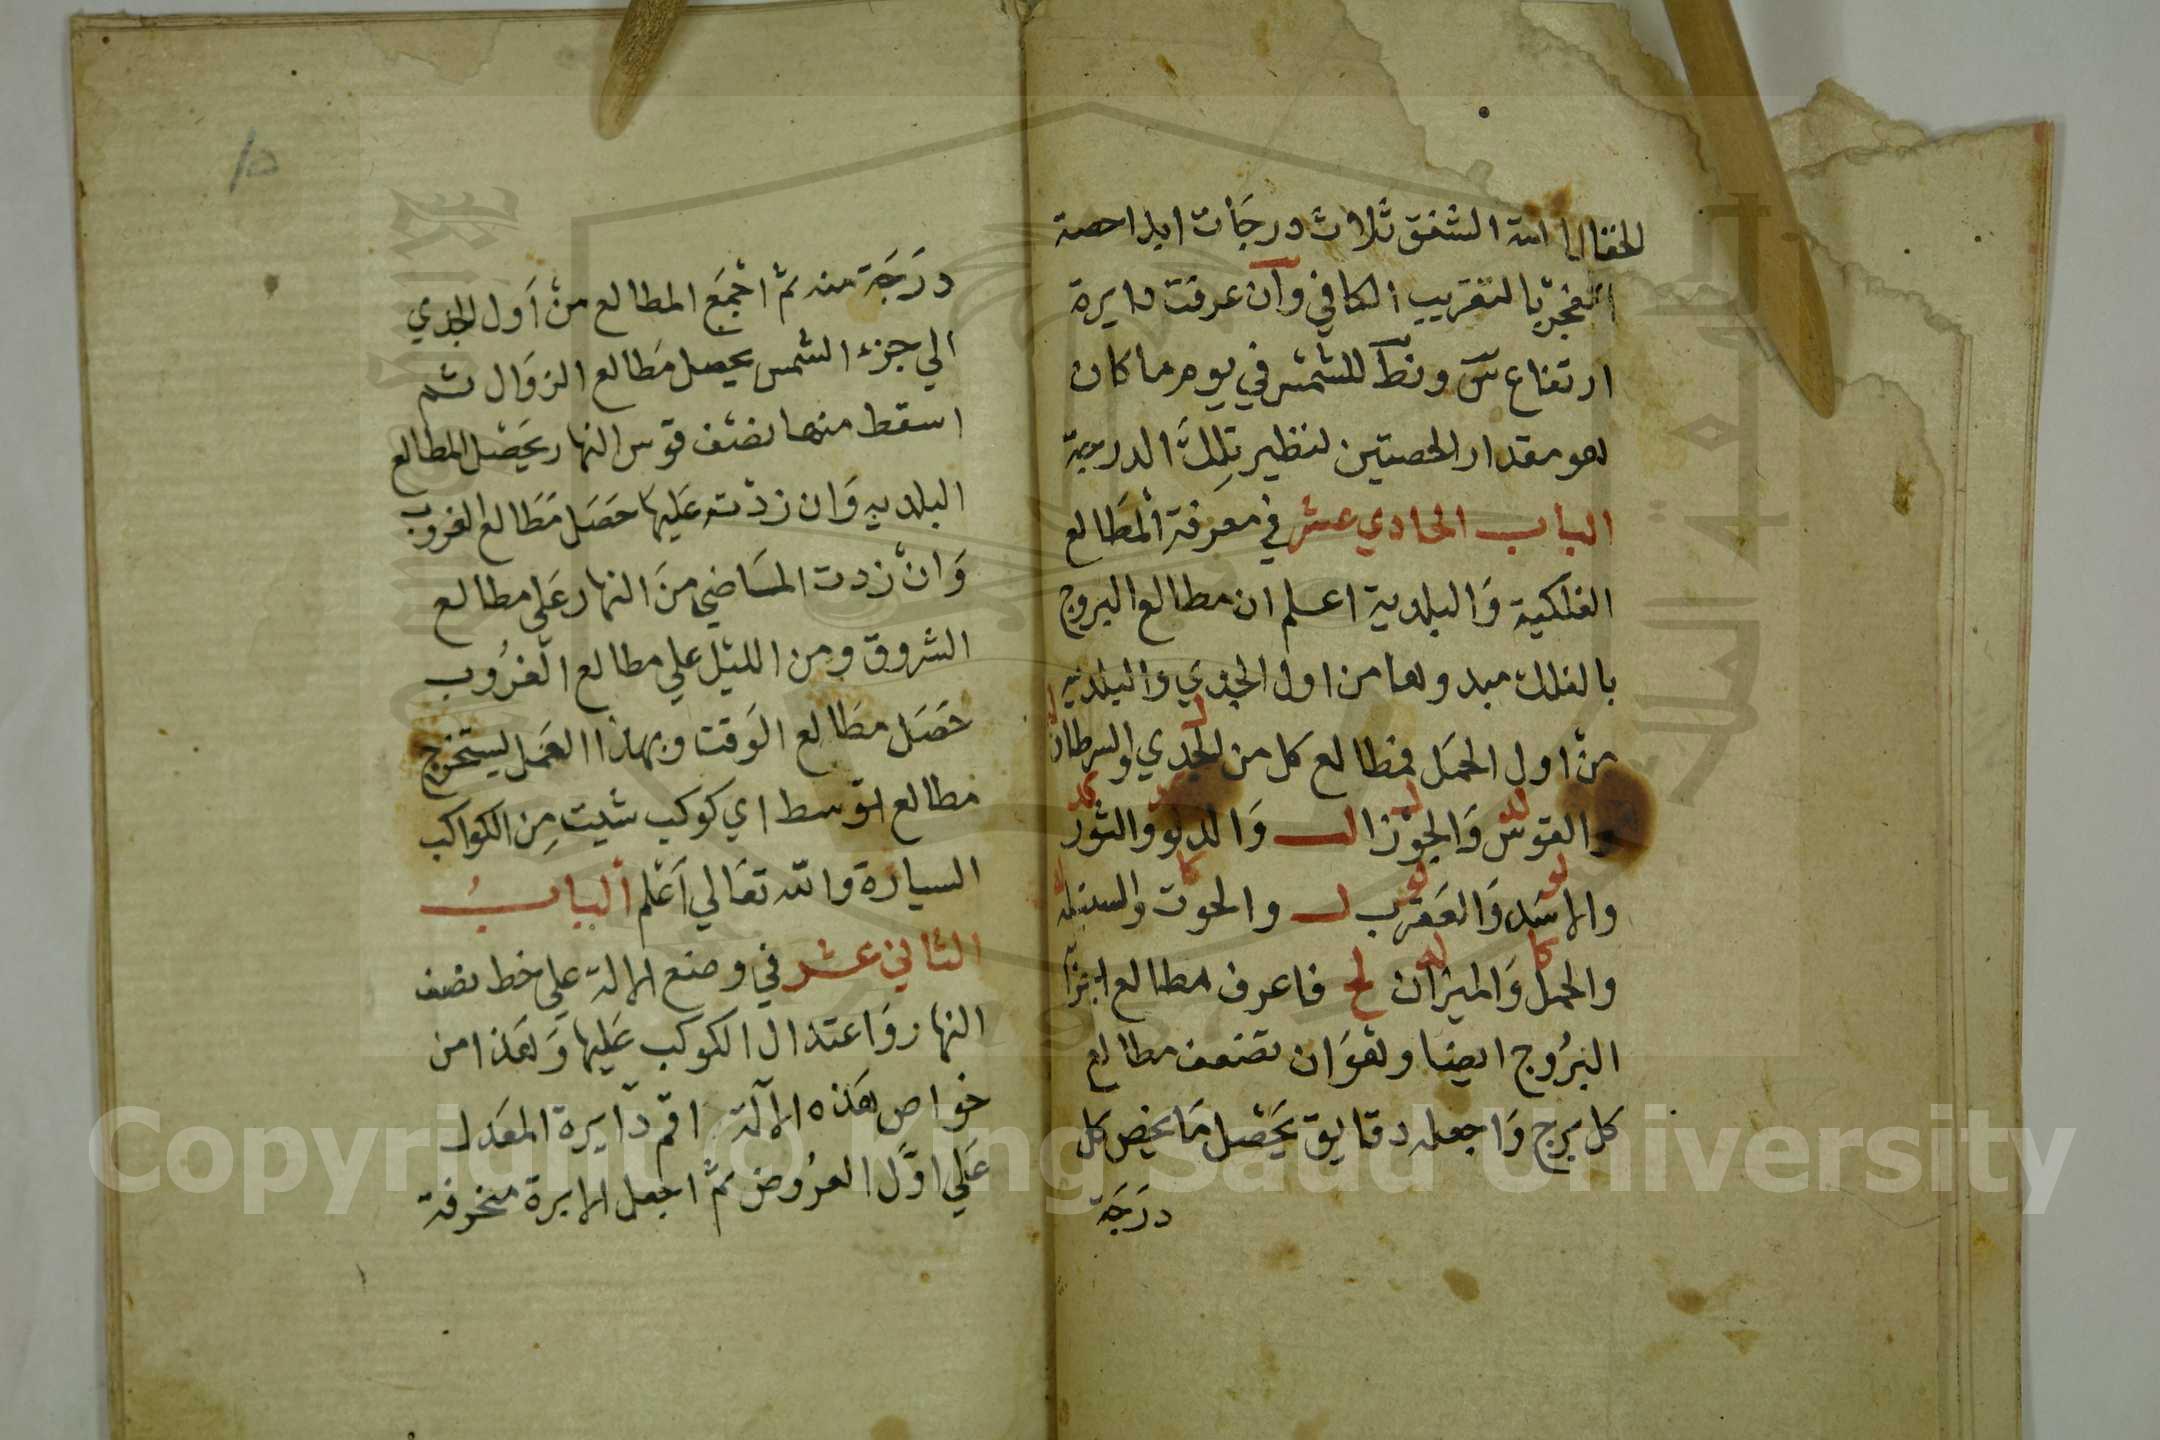 الشفق ثلاث درجات ابدا حصة
الفجر بالتقريب الكافي وان عرفت دايرة
ارتفاع س ونط للشمس في يوم ما كان
هو مقدار الحصتين لنظير تلك الدرجة
الباب الحادي عشر في معرفة المطالع
الفلكية والبلدية اعلم ان مطالع البروج
بالفلك مبدوها من اول الجدي والبلديه
من اول الحمل فمطالع كل من الجدي والسرطان
والقوس والجوزا لب والدلو والثور
والاسد والعقرب ل والحوت والسنبله
والحمل والميزان لح فاعرف مطالع اجزا
البروج ايضا وهو ان تضعف مطالع
كل برج واجعله دقايق يحصل ما يخص كل
درجة
درجة منه ثم اجمع المطالع من اول الجدي
الي جزء الشمس يحصل مطالع الزوال ثم
اسقط منها نصف قوس النهار يحصل المطالع
البلديه وان زدته عليها حصل مطالع الغروب
وان زدت الماضي من النهار علي مطالع
الشروق ومن الليل علي مطالع الغروب
حصل مطالع الوقت وبهذا العمل يستخرج
مطالع توسط اي كوكب شيت من الكواكب
السيارة والله تعالي اعلم الباب
الثاني عشر في وضع الالة علي خط نصف
النهار واعتدال الكوكب عليها وهذا من
خواص هذه الآلة اقم دايرة المعدل
علي اول العروض ثم اجعل الابرة منحرفة
Copyright © King Saud University